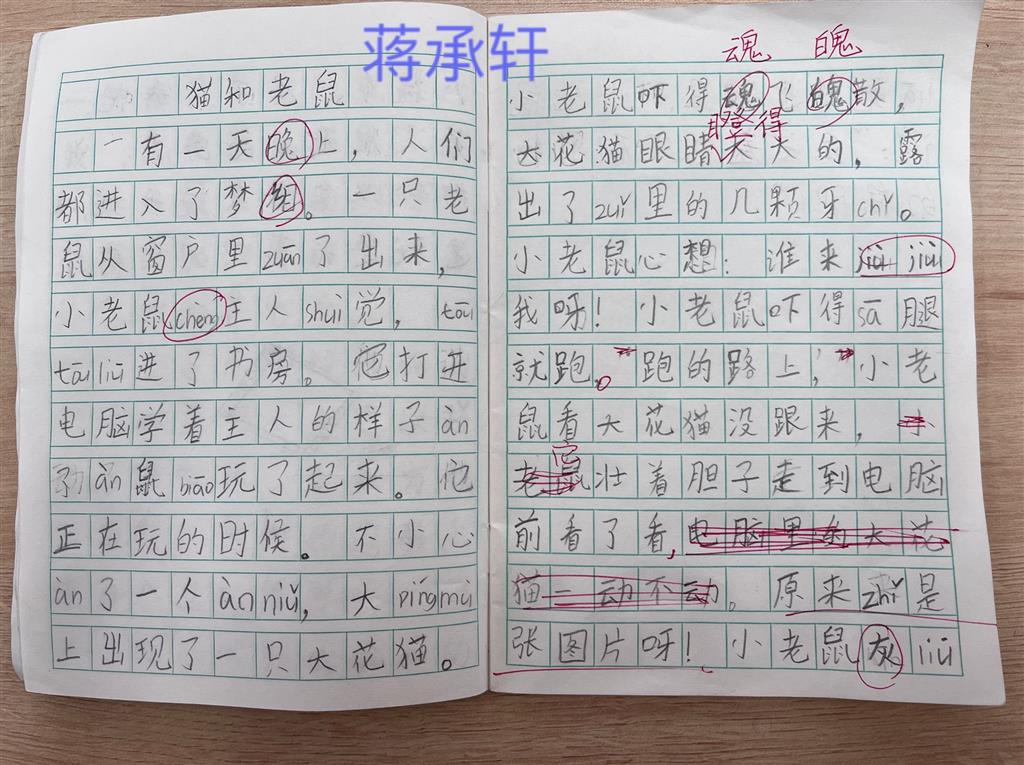 蒋承轩
猫和老鼠
一有一天晚上，人们
都进入了梦组。一只老
鼠从窗户里zuān了出来，
小老鼠chéng主人shuì觉，tōu
tōu liū进了书房。它打开
电脑学着主人的样子àn
了àn鼠biāo玩了起来。它
正在玩的时候。不小心
àn了一个àn niǔ，大píng mù
上出现了一只大花猫。
魂 魄
小老鼠吓得魂飞魄散，
瞪得
大花猫眼睛大大的，露
出了zuǐ里的几颗牙chǐ。
小老鼠心想：谁来jiù jiù
我呀！小老鼠吓得sā腿
就跑。跑的路上，小老
鼠看大花猫没跟来，小
它
老鼠壮着胆子走到电脑
前看了看，电脑里的大花
猫一动不动。原来zhǐ是
张图片呀！小老鼠灰liū